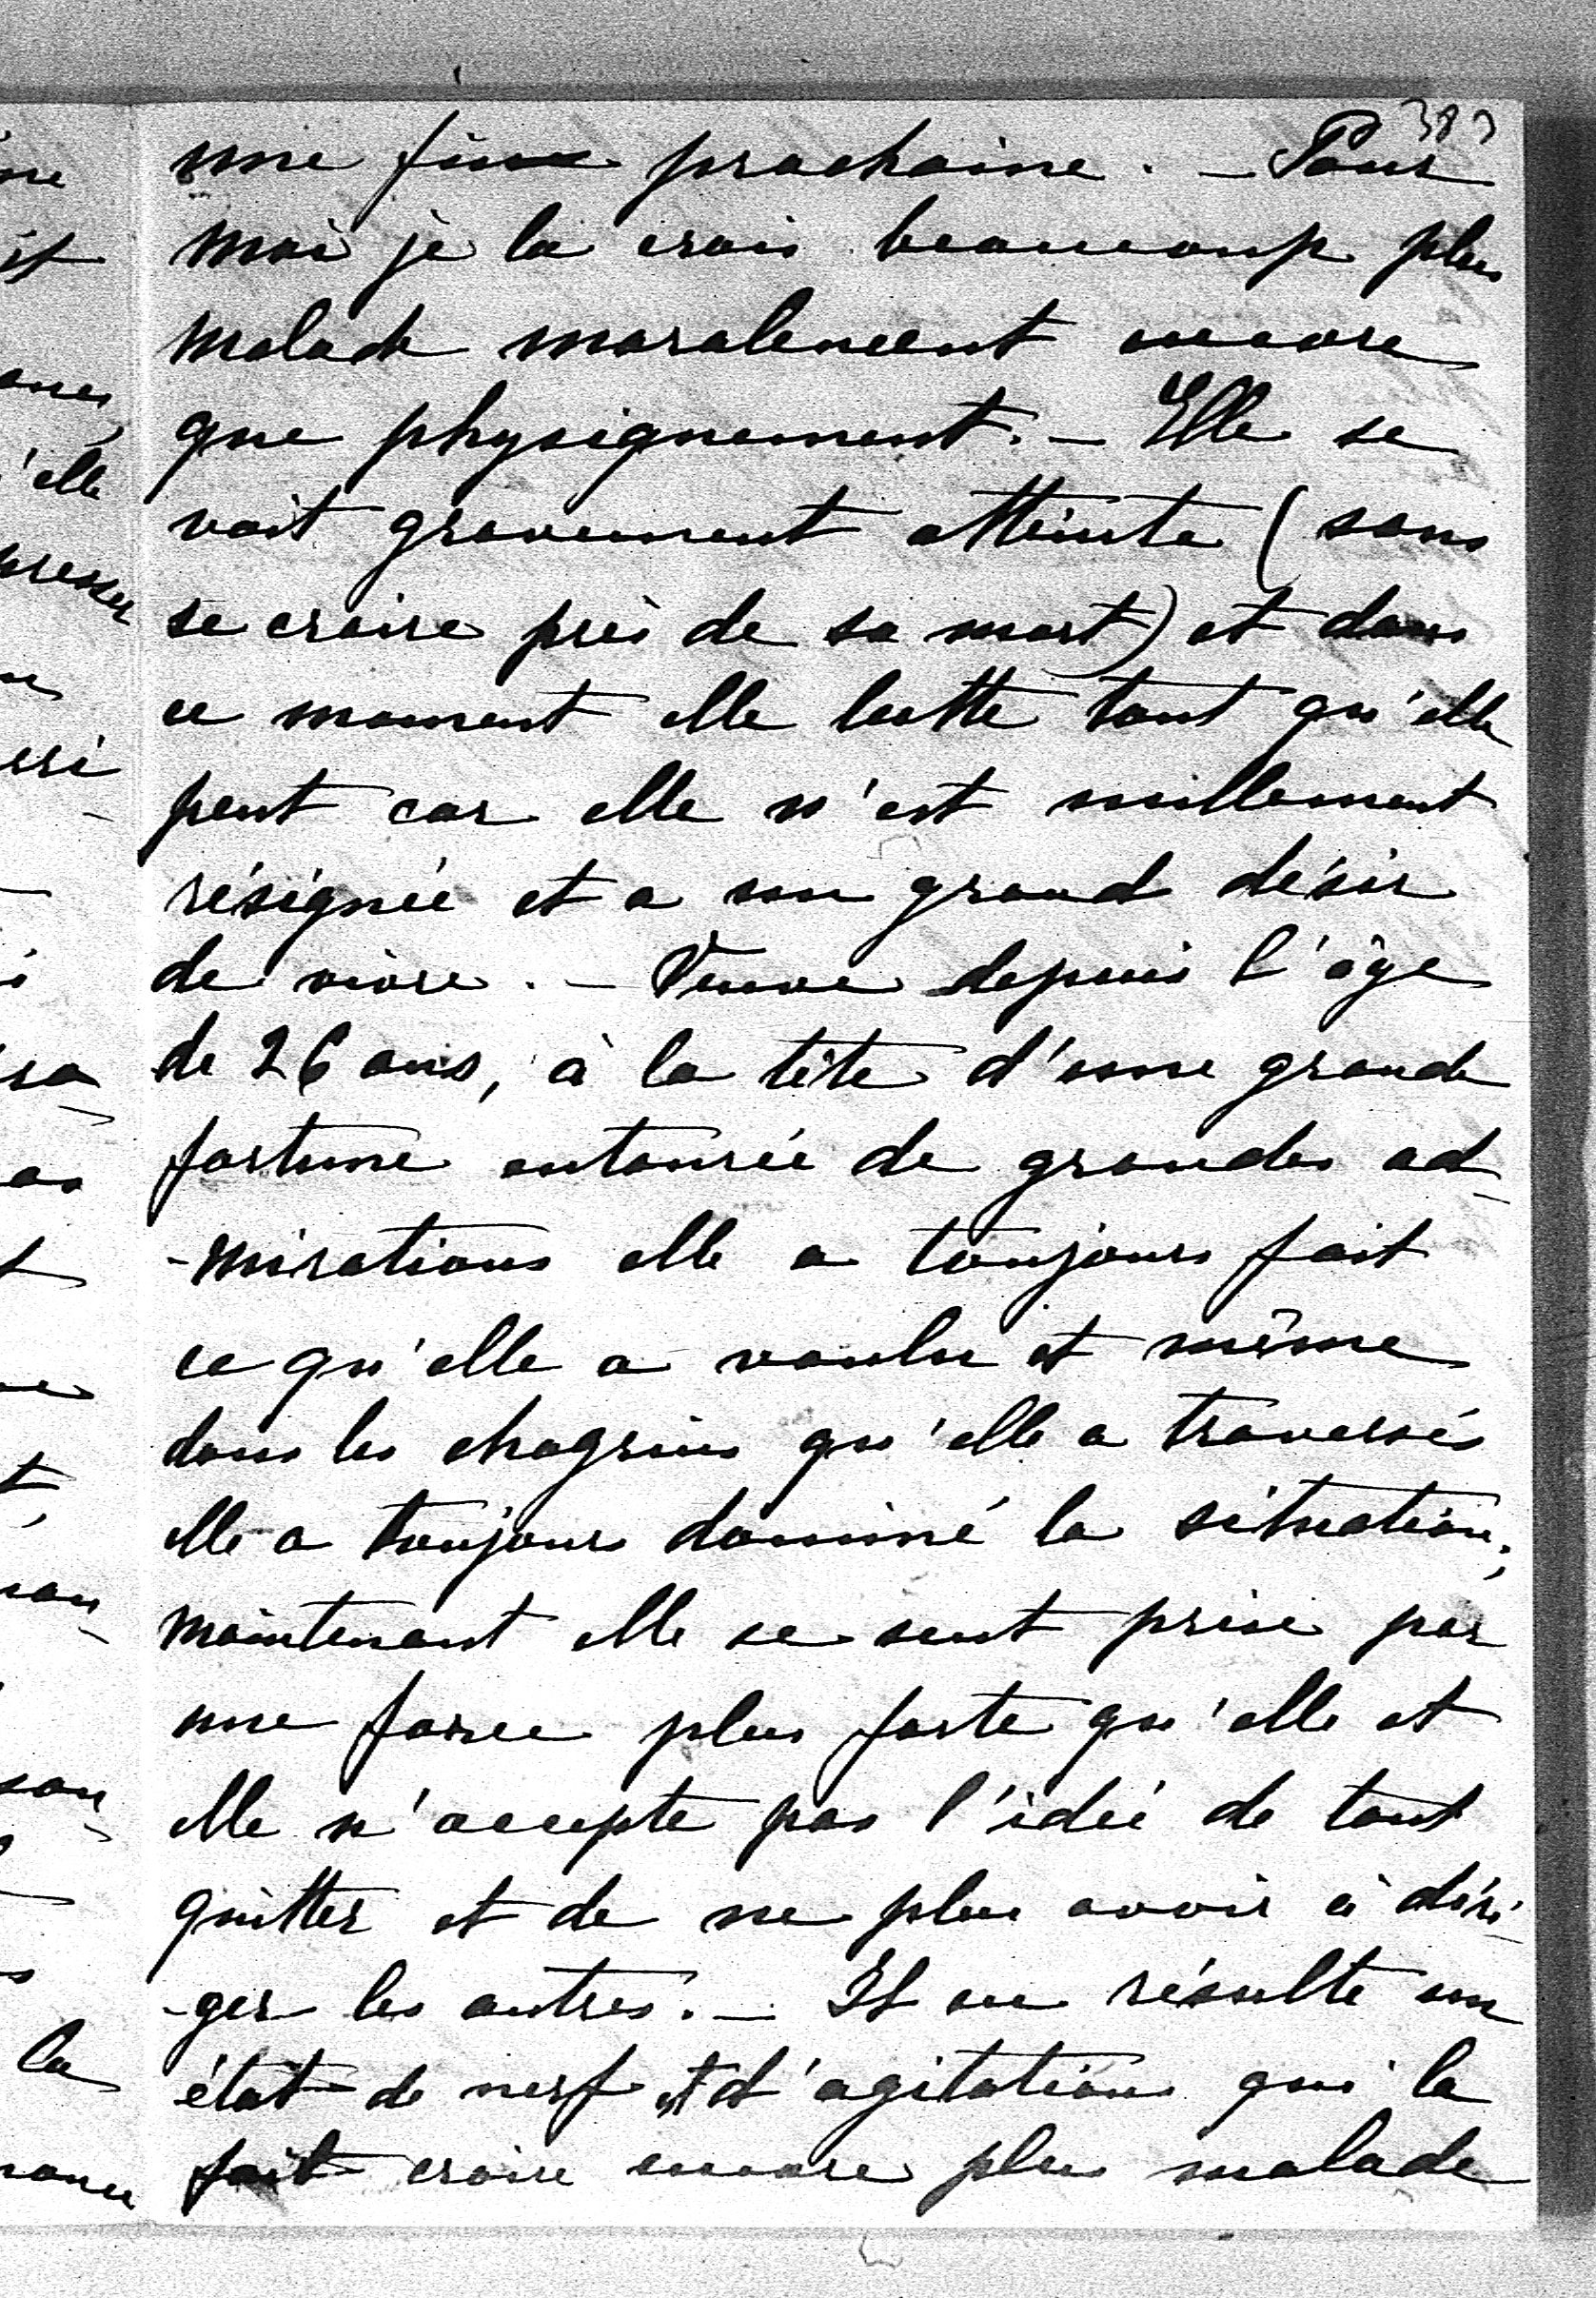 383
une fin prochaine. - Pour
moi je la crois beaucoup plus
malade moralement encore
que physiquement. - Elle se
voit gravement atteinte (sans
se croire près de sa mort) et dans
ce moment elle lutte tant qu'elle
peut car elle n'est nullement
résignée et a un grand désir
de vivre. - Veuve depuis l'âge
de 26 ans, à la tête d'une grande
fortune entourée de grandes ad-
-mirations elle a toujours fait
ce qu'elle a voulu et même
dans les chagrins qu'elle a traversés
elle a toujours dominé la situation;
maintenant elle se sent prise par
une force plus forte qu'elle et
elle n'accepte pas l'idée de tout
quitter et de ne plus avoir à diri-
-ger les autres. - Il en résulte un
état de nerf et d'agitation qui la
fait croire encore plus malade